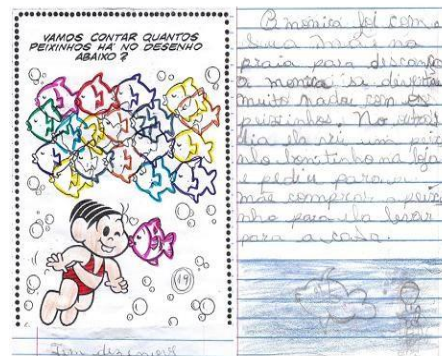 VAMOS CONTAR QUANTOS
PEIXINHOS HÁ NO DESENHO
ABAIXO?
19
Tem dezenove
A monica foi com a
sua mãe na
praia para descança
a monica
muito nadar com os
peixinhos. No outro
dia ela viu um peixi
nho bonitinho na loja
e pediu para a
mãe comprar o peixi
nho para ela levar
para a casa.